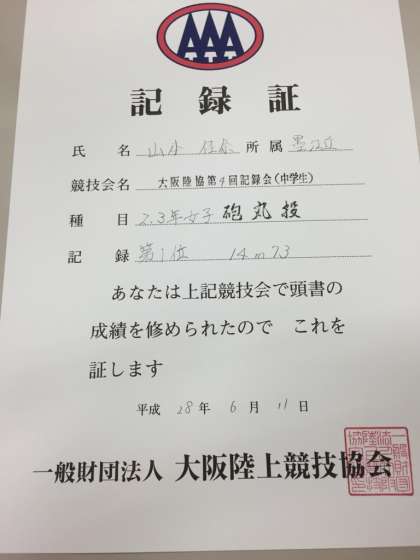 AAA
記録証
氏名 山本 佳奈 所属 墨江丘
競技会名 大阪陸協第4回記録会(中学生)
種目 2.3年女子 砲丸投
記録 第1位 14m73
あなたは上記競技会で頭書の
成績を修められたので これを
証します
平成 28年 6月 11日
一般財団法人 大阪陸上競技協会